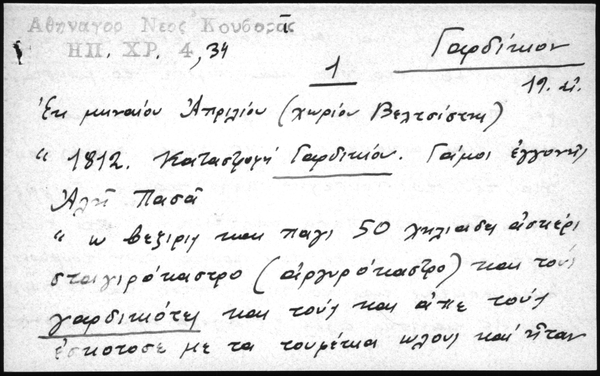 Αθηναγορ Νεος Κουβαρᾶς
ΗΠ. ΧΡ. 4, 34
Γαρδίκιον
1
19. αι.
Ἐκ μηναίου Ἀπριλίου (χωρίον Βελτσίστης)
" 1812. Καταστροφή Γαρδικίου. Γάμοι ἐγγονῆς
Ἀλῆ Πασᾶ
" ω βεζιρις και παγι 50 χηλιαδες ἀσκέρι
σταγιρόκαστρο (ἀργυρόκαστρο) και τούς
γαρδικιότες και τούς και ἀπε τούς
ἐσκοτοσε με τα τουφέκια ωλους και ἦταν